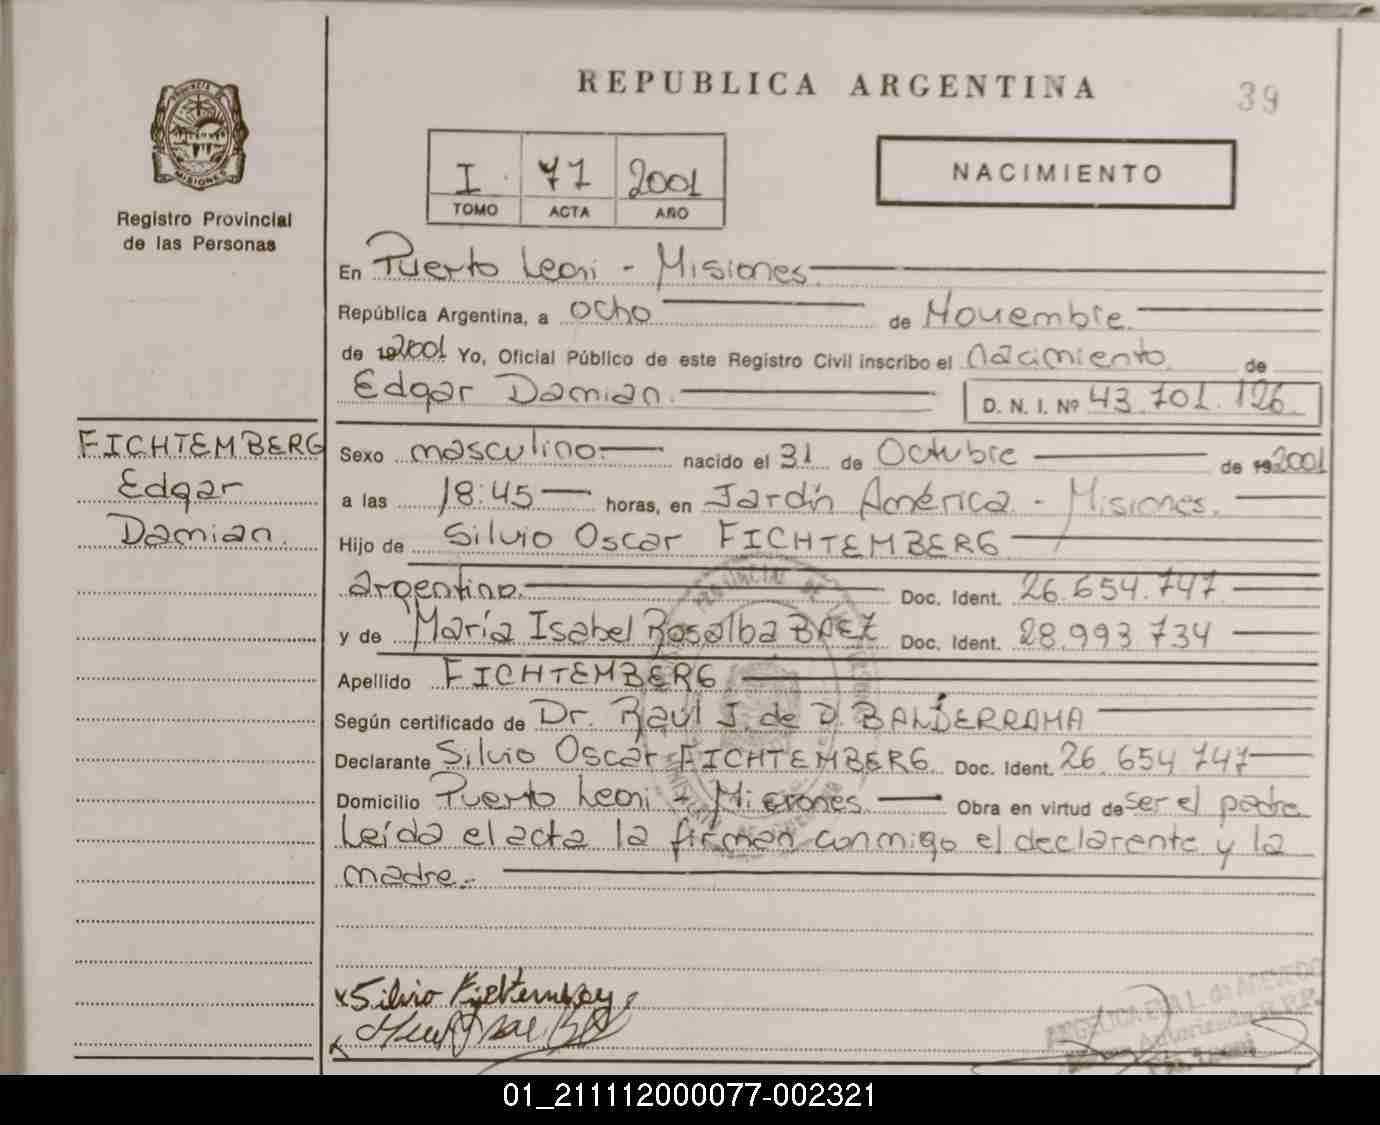 REPUBLICA ARGENTINA
39
PROVINCIA DE
MISIONES
Registro Provincial
de las Personas
I 77 2001
TOMO ACTA AÑO
NACIMIENTO
En Puerto Leoni - Misiones
República Argentina, a ocho de Noviembre
de 192001 Yo, Oficial Público de este Registro Civil inscribo el nacimiento de
Edgar Damian. D. N. I. Nº 43.701.126
FICHTEMBERG
Edgar
Damian.
Sexo masculino nacido el 31 de Octubre de 192001
a las 18:45 horas, en Jardín América - Misiones.
Hijo de Silvio Oscar FICHTEMBERG
argentino. Doc. Ident. 26.654.747
y de María Isabel Rosalba BAEZ Doc. Ident. 28.993 734
Apellido FICHTEMBERG
Según certificado de Dr. Raúl J. de D. BALDERRAMA
Declarante Silvio Oscar FICHTEMBERG Doc. Ident. 26.654 747
Domicilio Puerto Leoni - Misiones Obra en virtud de ser el padre
Leída el acta la firman conmigo el declarante y la
madre.-
x Silvio Fichtemberg
01_211112000077-002321